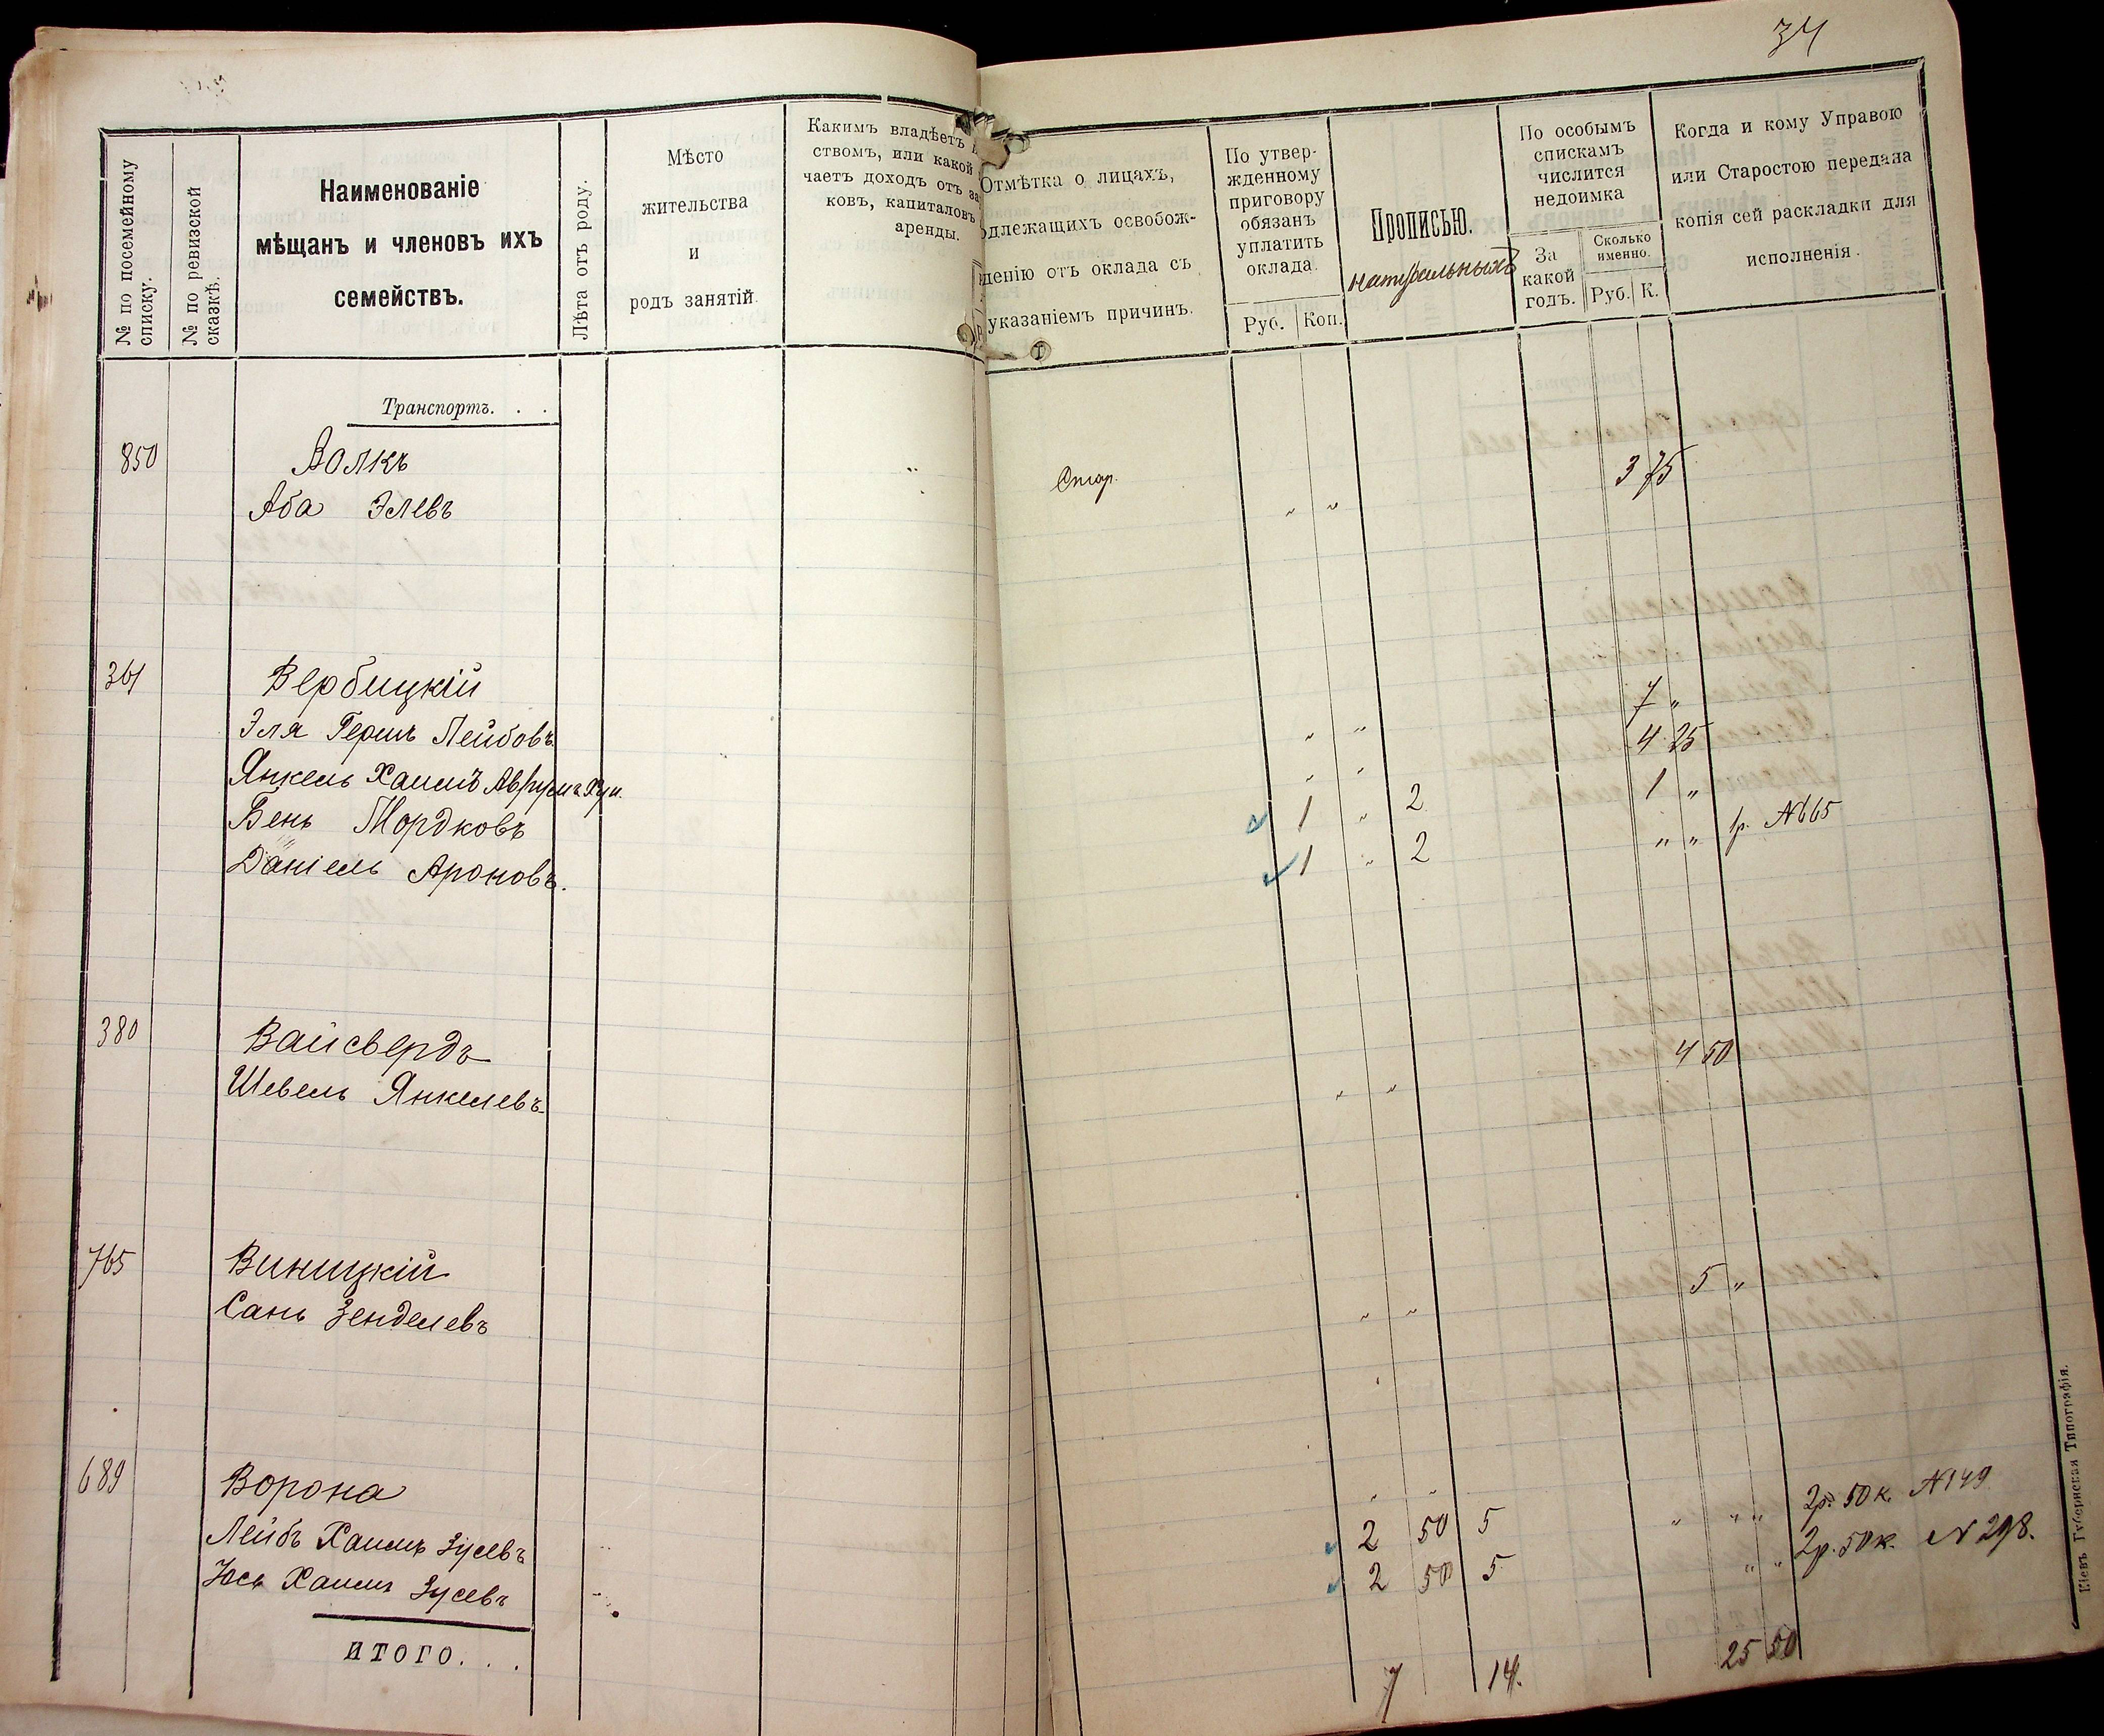 34
№ по посемейному списку.
№ по ревизской сказкѣ.
Наименованіе
мѣщанъ и членовъ ихъ
семействъ.
Лѣта отъ роду.
Мѣсто
жительства
и
родъ занятій.
Какимъ владѣетъ
ствомъ, или какой
чаетъ доходъ отъ за
ковъ, капиталовъ
аренды.
Отмѣтка о лицахъ,
одлежащихъ освобож-
денію отъ оклада съ
указаніемъ причинъ.
По утвер-
жденному
приговору
обязанъ
уплатить
оклада.
Руб. Коп.
Прописью.
натуральныхъ
По особымъ
спискамъ
числится
недоимка
За
какой
годъ.
Сколько
именно.
Руб. К.
Когда и кому Управою
или Старостою передана
копія сей раскладки для
исполненія.
Транспортъ. . .
850 Волкъ
Аба Элевъ Стар. „ „ 3 75
361 Вербицкій
Эля Гершъ Лейбовъ „ „ 7 „
Янкель Хаимъ Аврумъ „ „ 4 25
Бень Мордковъ 1 „ 2 1 „
Даніель Ароновъ. 1 „ 2 „ „ 1р. №665
380 Вайсвердъ
Шевель Янкелевъ „ „ 4 50
765 Виницкій
Сань Зенделевъ „ „ 5 „
689 Ворона „ „
Лейбъ Хаимъ Зусевъ 2 50 5 „ „ „ 2р. 50к. №149
Юсь Хаимъ Зусевъ 2 50 5 „ „ 2р. 50к. № 298.
итого. . . 7 14. 25 50
Кіевъ Губернская Типографія.